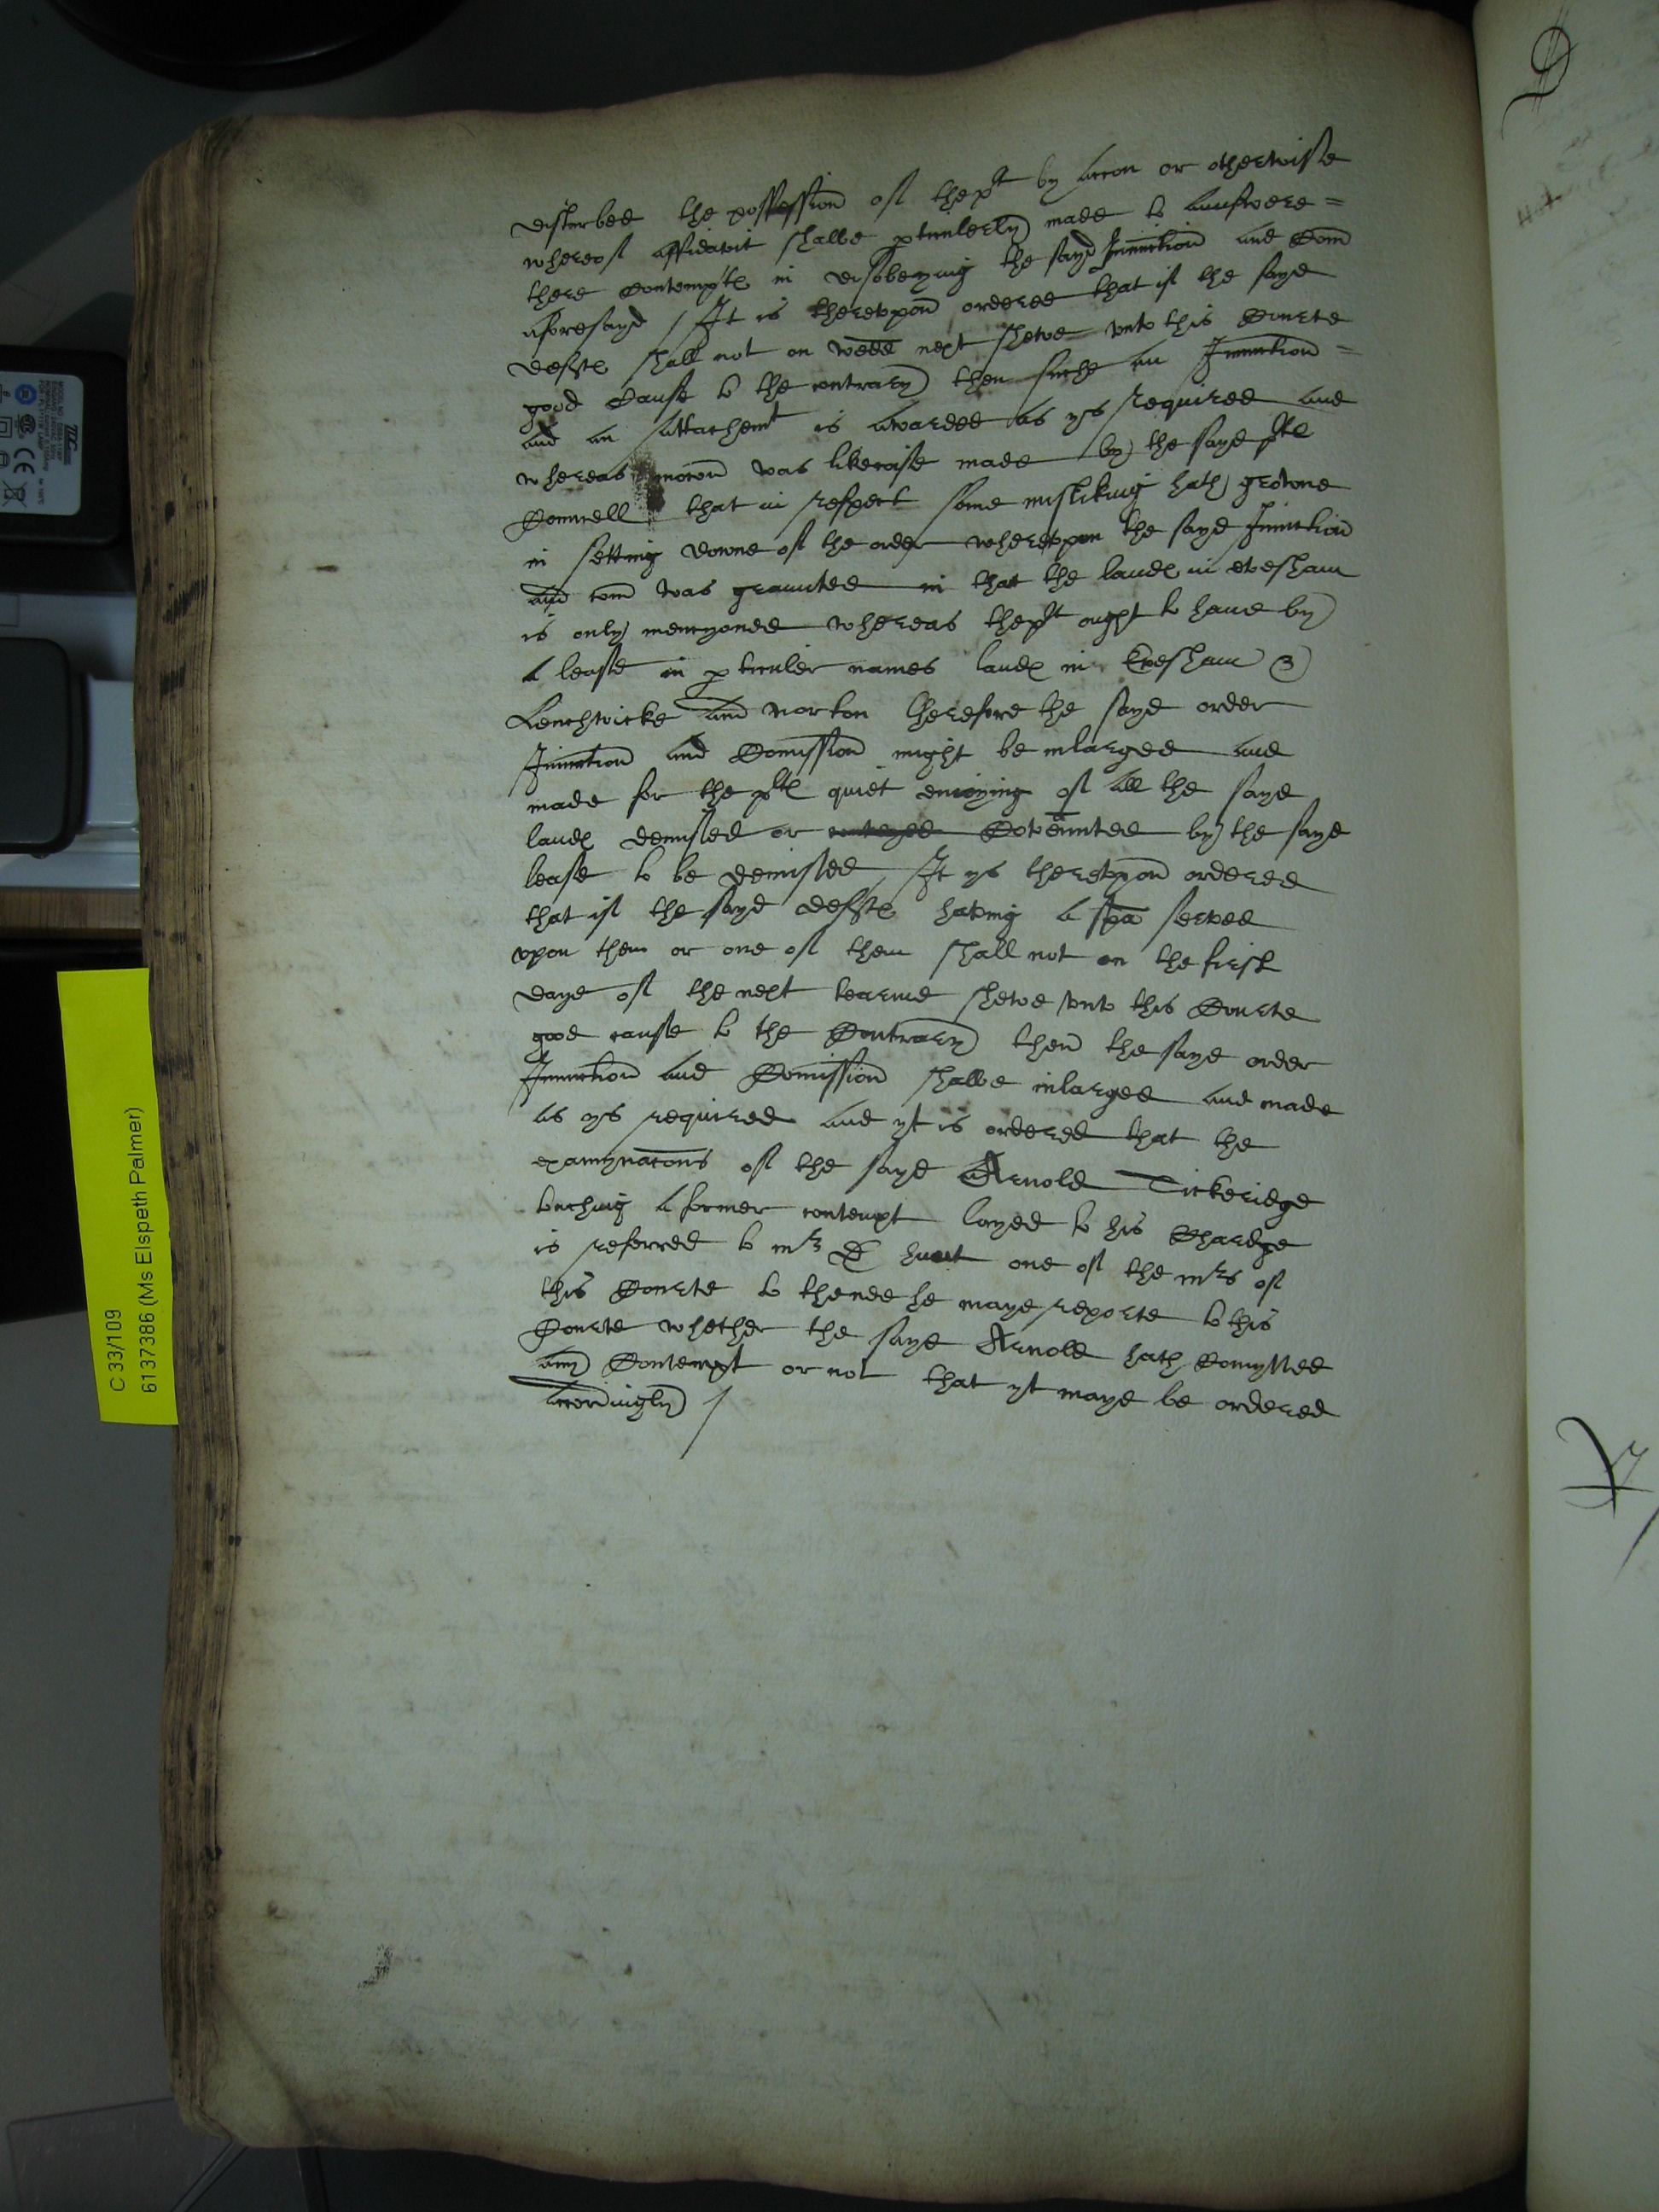 disturbed the possession of the plt by accon or otherwise
whereof affidavit shalbe pticulerly made to aunswere =
there Contemptes in disobeying the sayd Iniunction and Com
aforesayd / It is therevpon ordered that if the sayd
deftes shall not on wedd next shewe vnto this Courte
good Cause to the contrary then suche an Iniunction =
and an Attachemt is awarded as ys required and
whereas mocon was likewise made by the sayd pltes
Counsell that in respect some mistaking hath growne
in setting downe of the order wherevpon the sayd Iniunction
and com was graunted in that the landes in evesham
is only mencyoned whereas the plt ought to haue by
A lease in pticuler names landes in Evesham
Lenchwicke and norton therefore the sayd order
Iniunction and Comission might be inlarged and
made for the pltes quiet enioying of all the sayd
landes demised or Covennted by the sayd
lease to be demised / It ys therevpon ordered
that if the sayd deftes having A spa served
vpon them or one of them shall not on the first
daye of the next tearme shewe vnto this Courte
good cause to the Contrary then the sayd order
Iniunction and Comission shalbe inlarged and made
as ys required and yt is ordered that the
examynacons of the sayd Arnold Tickeridge
touching A former contempt layed to his Chardge
is referred to mr D hunt one of the mrs of
this Courte to thend he maye reporte to this
Courte whether the sayd Arnold hath Comytted
any Contempt or not that yt maye be ordered
accordingly /
C 33/109
6137386 (Ms Elspeth Palmer)